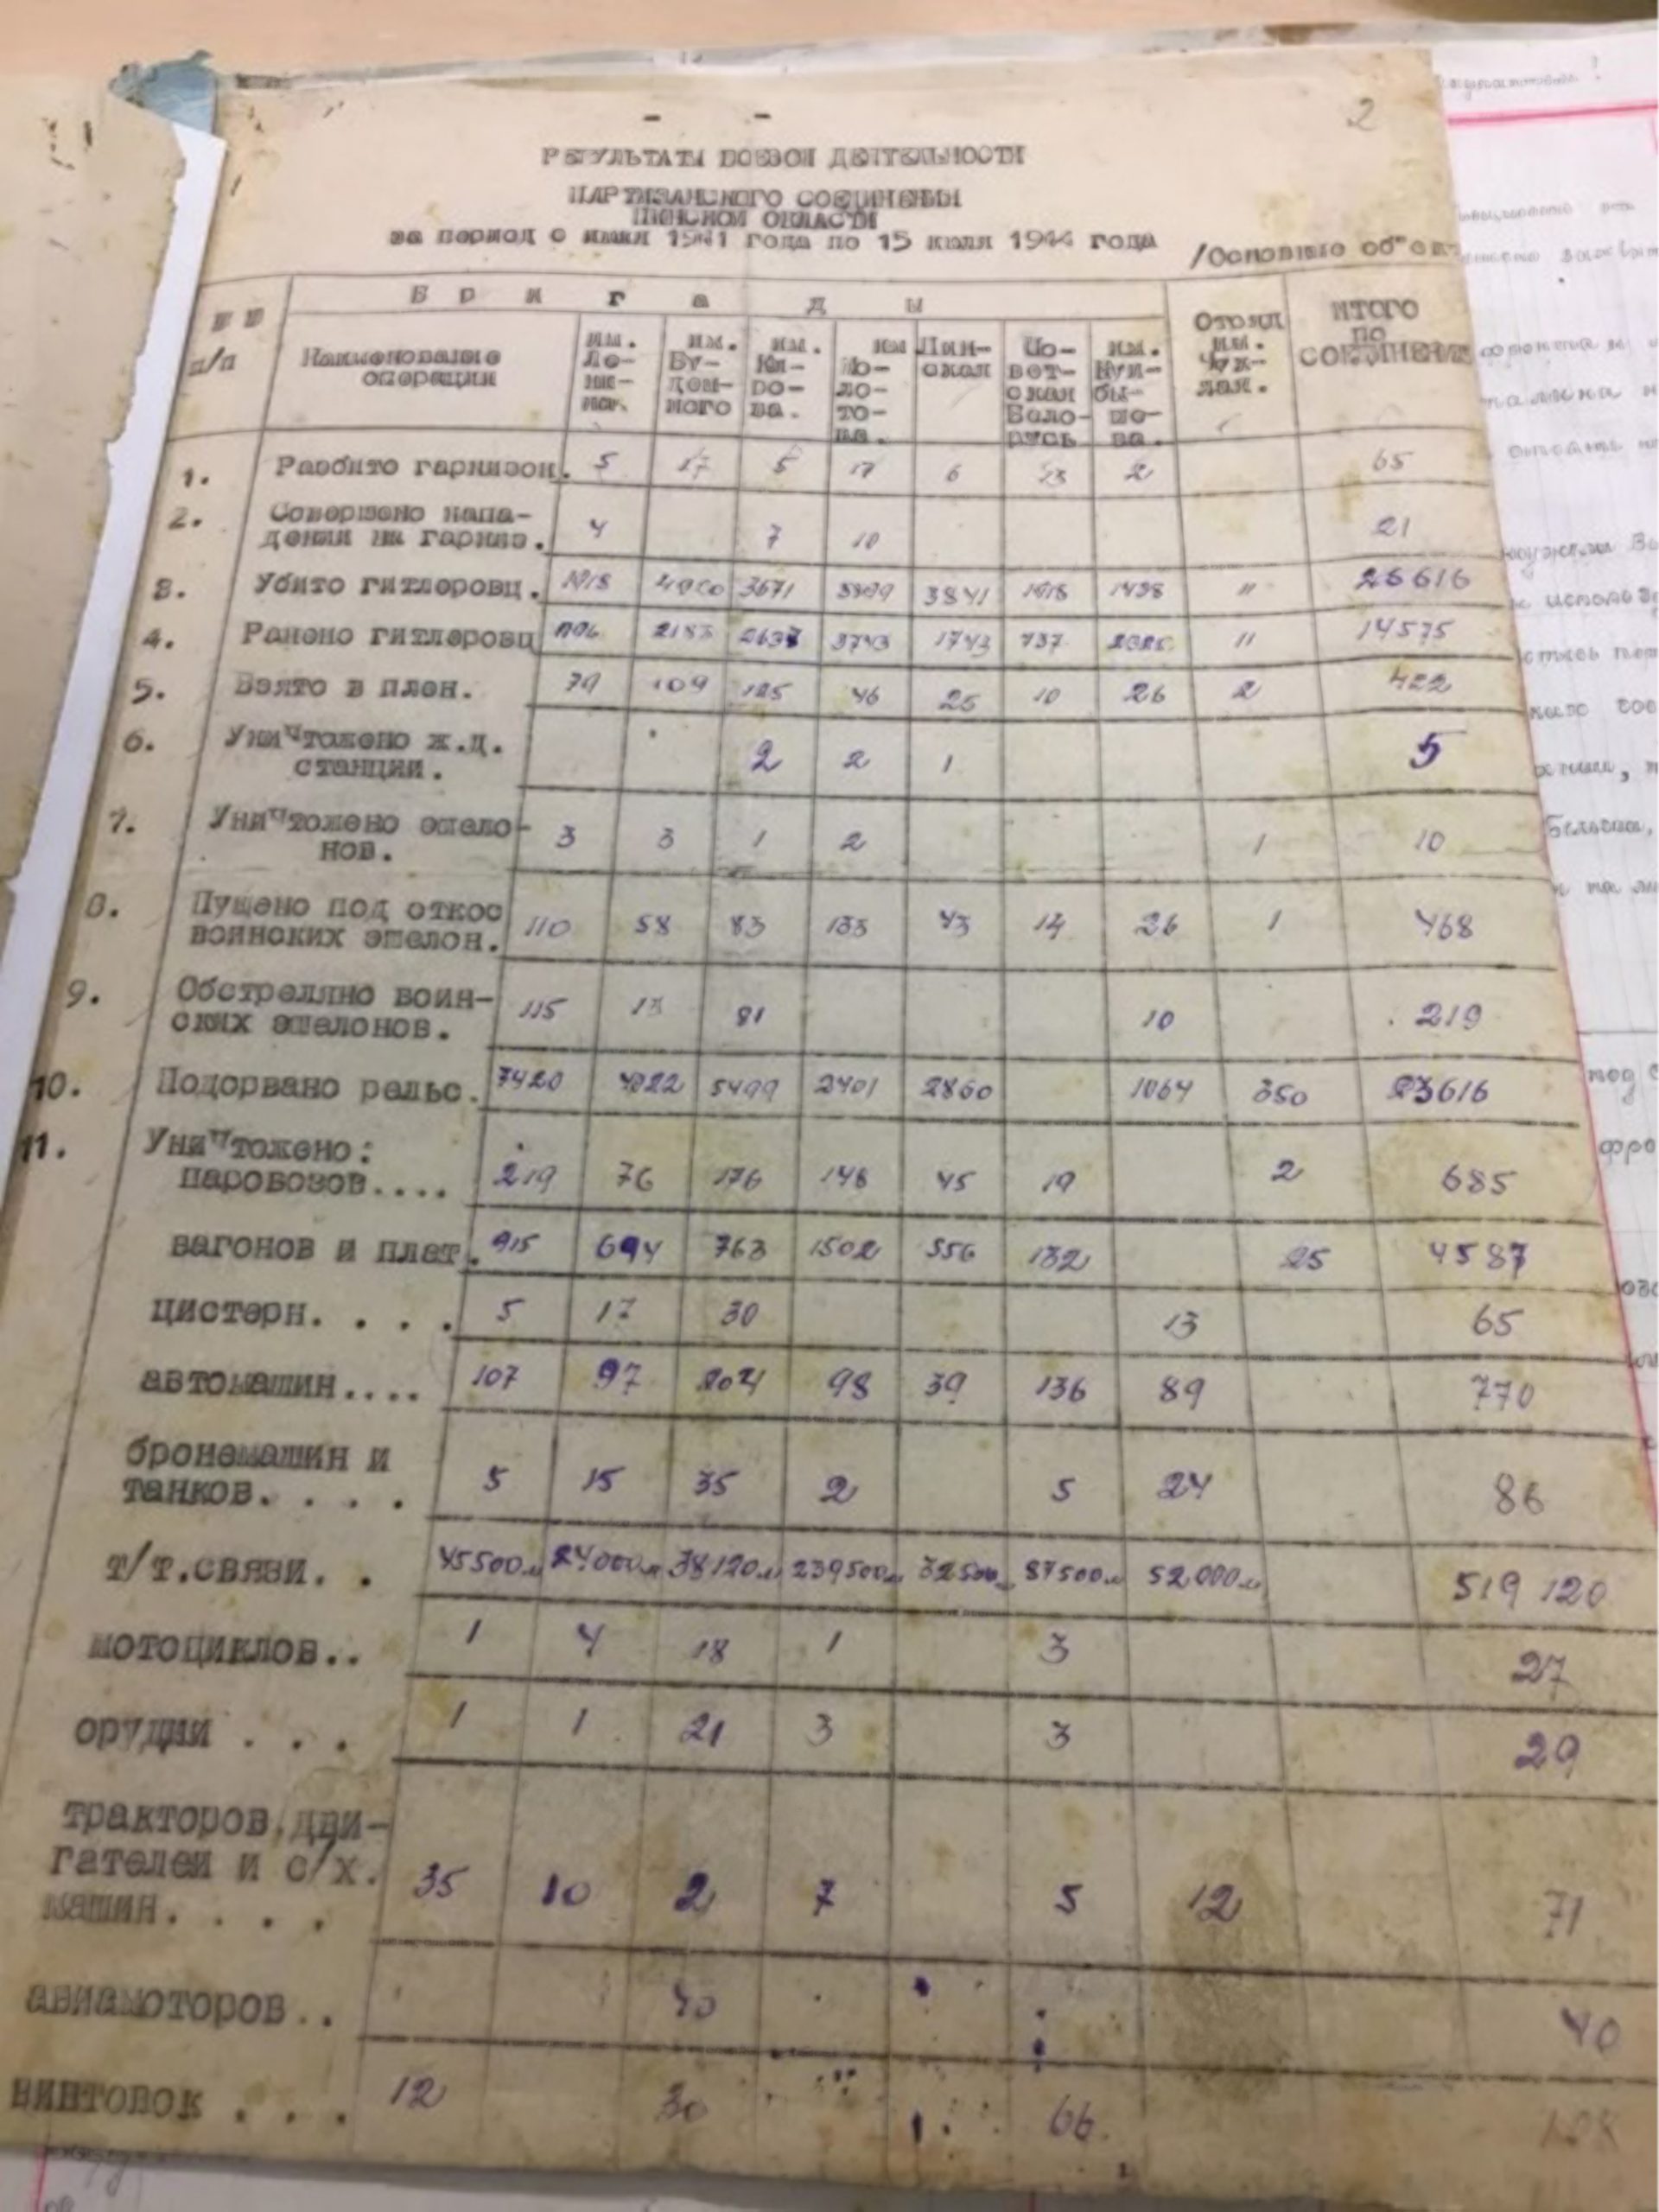 2
РЕЗУЛЬТАТЫ БОЕВОЙ ДЕЯТЕЛЬНОСТИ
ПАРТИЗАНСКОГО СОЕДИНЕНИЯ
ПИНСКОЙ ОБЛАСТИ
за период с июня 1941 года по 15 июля 1944 года /Основные об
Б р и г а д ы
п/п Наименование операции им. Ле-ни-на. им. Бу-ден-ного им. Ки-ро-ва. им Мо-ло-то-ва. Пин-ская Со-вет-ская Бело-русь им. Куй-бы-ше-ва. Отряд им. Чук-лая. ИТОГО ПО СОЕДИНЕНИЮ
1. Разбито гарнизон. 5 17 5 17 6 13 2 65
2. Совершено напа-
дений на гарниз. 4 7 10 21
3. Убито гитлеровц. 3671 3841 1498 " 26616
4. Ранено гитлеровц 2183 2637 3743 1743 737 " 14575
5. Взято в плен. 79 109 125 46 25 10 26 2 422
6. Уничтожено ж.д.
станций. 2 2 1 5
7. Уничтожено эшело-
нов. 3 3 1 2 1 10
8. Пущено под откос
воинских эшелон. 110 58 83 133 43 14 26 1 468
9. Обстреляно воин-
ских эшелонов. 115 13 81 10 219
10. Подорвано рельс. 7420 4022 5499 2401 2860 1064 350 23616
11. Уничтожено:
паровозов.... 219 76 176 148 45 19 2 685
вагонов и плат. 915 694 763 1502 556 132 25 4587
цистерн. . . . 5 17 30 13 65
автомашин.... 107 97 204 98 39 136 89 770
бронемашин и
танков. . . . 5 15 35 2 5 24 86
т/т.связи. . 45500м 24000м 38120м 239500м 32500м 87500м 52000м 519 120
мотоциклов.. 1 4 18 1 3 27
орудий . . . 1 1 21 3 3 29
тракторов,дви-
гателей и с/х.
машин. . . . 35 10 2 7 5 12 71
авиамоторов.. 40 40
винтовок . . . 12 30 66 108